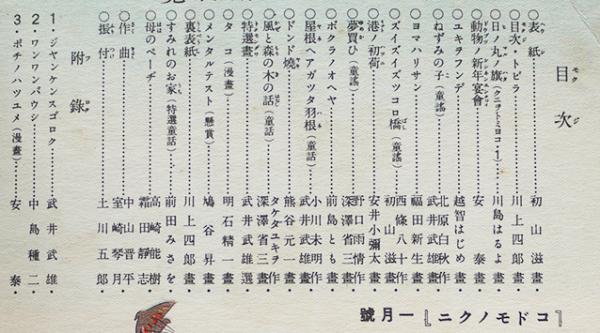 目次
○表紙……初山滋畫・
○目次・トビラ……川上四郎畫・
○日ノ丸ノ旗(クニヲトミヨコ・1)……川島はるよ畫・
○動物新年宴會……安泰畫・
○ユキヲフンデ……越智はじめ畫・
○ねずみの子(童謠)……北原白秋作 武井武雄畫・
○ヨマハリサン……福田新生畫・
○ズイズイズツコロ橋(童謠)……西條八十作 初山滋畫・
○港ノ初荷……安井小彌太畫・
○夢買ひ(童謠)……野口雨情作 深澤省三畫・
○ボクラノオヘヤ……前島とも畫・
○屋根ヘアガツタ羽根(童話)……小川未明作 武井武雄畫・
○ドンド燒……熊谷元一畫・
○風と森の木の話(童話)……タケタユキヲ作 深澤省三畫・
○特選畫……武井武雄選・
○タコ(漫畫)……明石精一畫・
○メンタルテスト(懸賞)……鳩谷昇畫・
○裏表紙……川上四郎畫・
○すみれのお家(特選童話)……前田みさを・
○母のページ……高崎能樹・霜田靜志・
○作曲……中山晋平・室崎琴月・
○振付……土川五郎・
附錄
1・ジヤンケンスゴロク……武井武雄・
2・ワンワンバウシ……中島種二・
3・ポチノハツユメ(漫畫)……安泰・
コドモノクニ 一月號